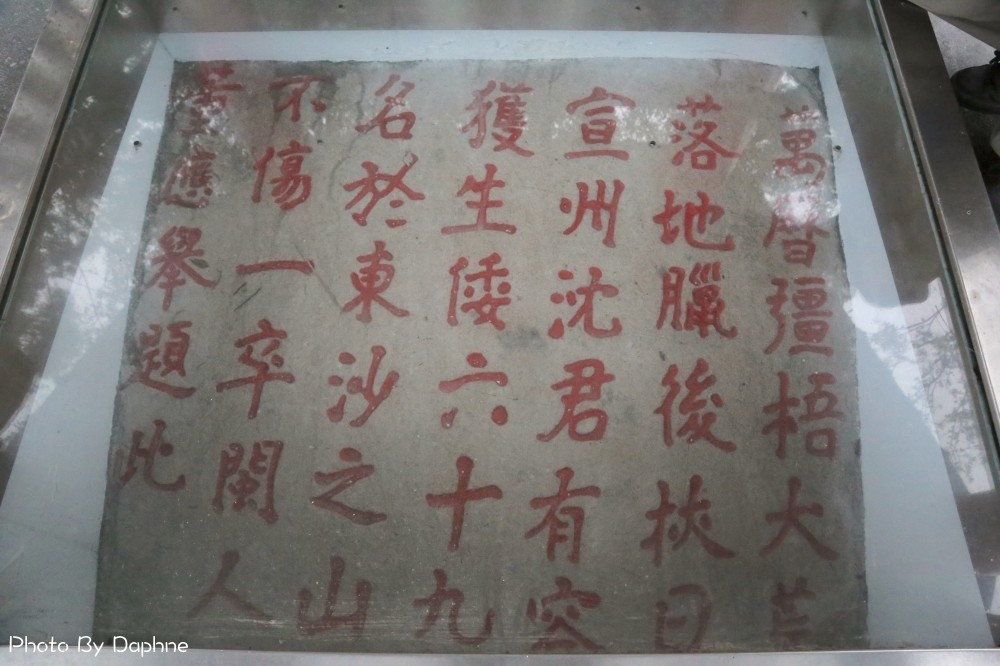 萬曆彊梧大荒
落地臘後挾日
宣州沈君有容
獲生倭六十九
名於東沙之山
不傷一卒閩人
董應舉題此
Photo By Daphne